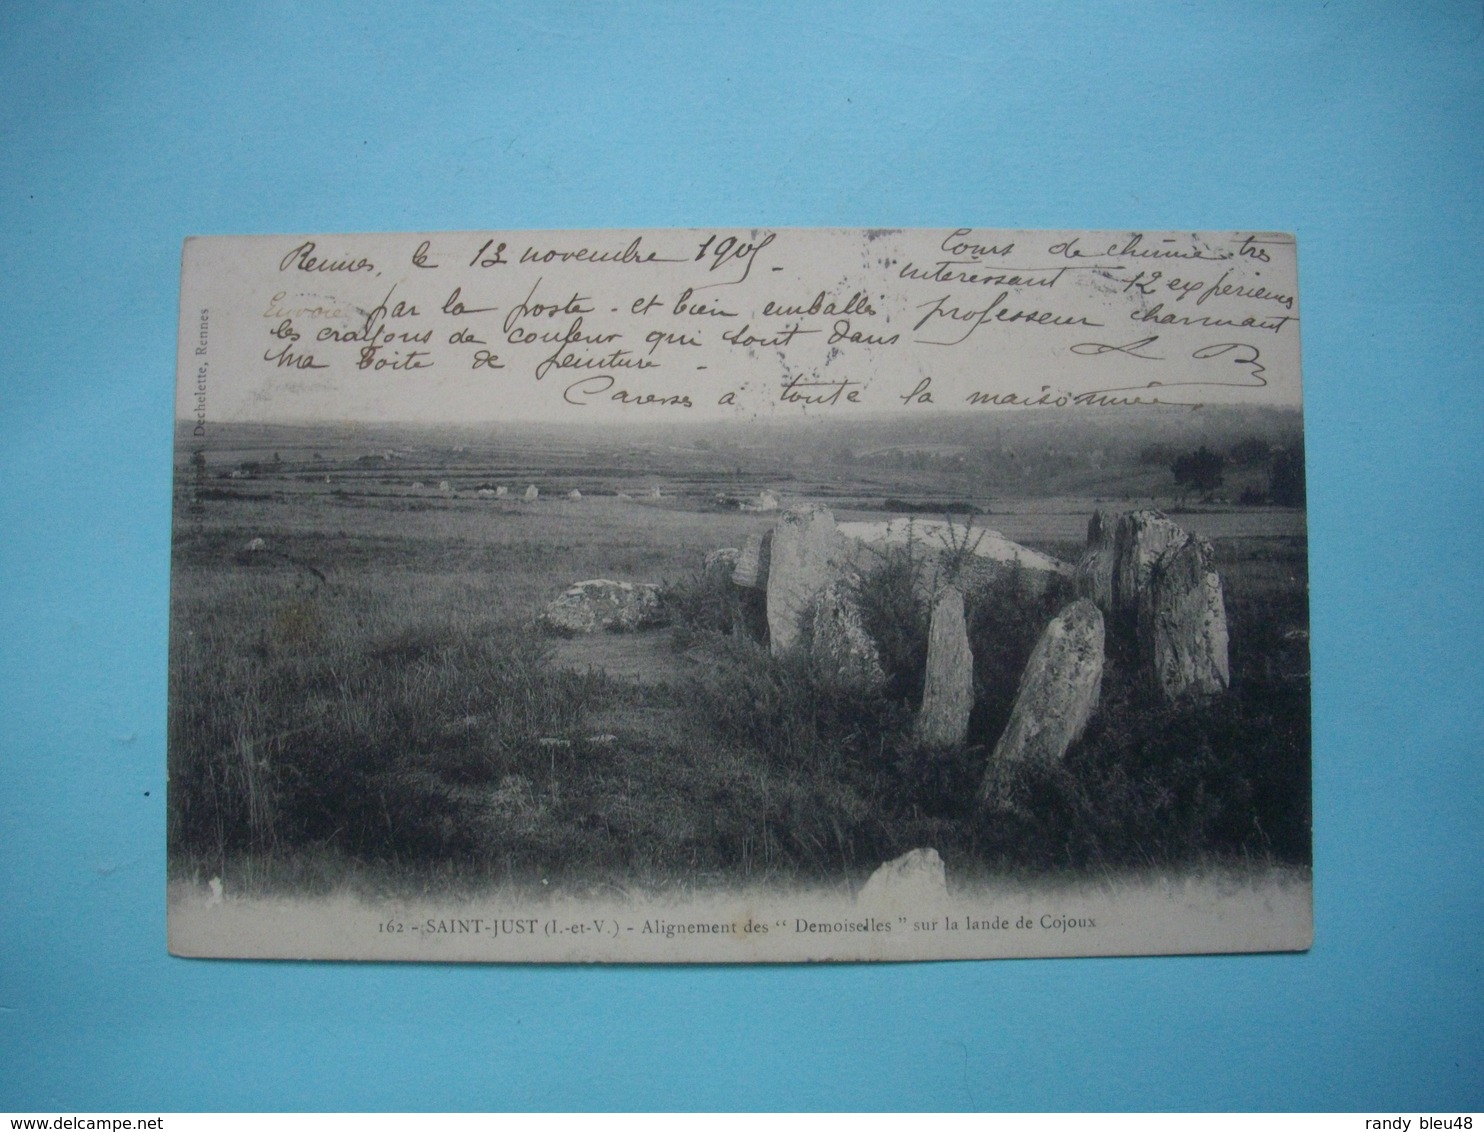 Rennes, le 13 novembre 1905 -
Envoie par la poste - et bien emballés
les crayons de couleur qui sont dans
ma boite de peinture -
Caresses a toute la maisonnée.
Cours de chimie très
interessant 12 experiences
professeur charmant
L B
Dechelette, Rennes
162 - SAINT-JUST (I.-et-V.) - Alignement des “ Demoiselles ” sur la lande de Cojoux
delcampe.net
randy bleu48